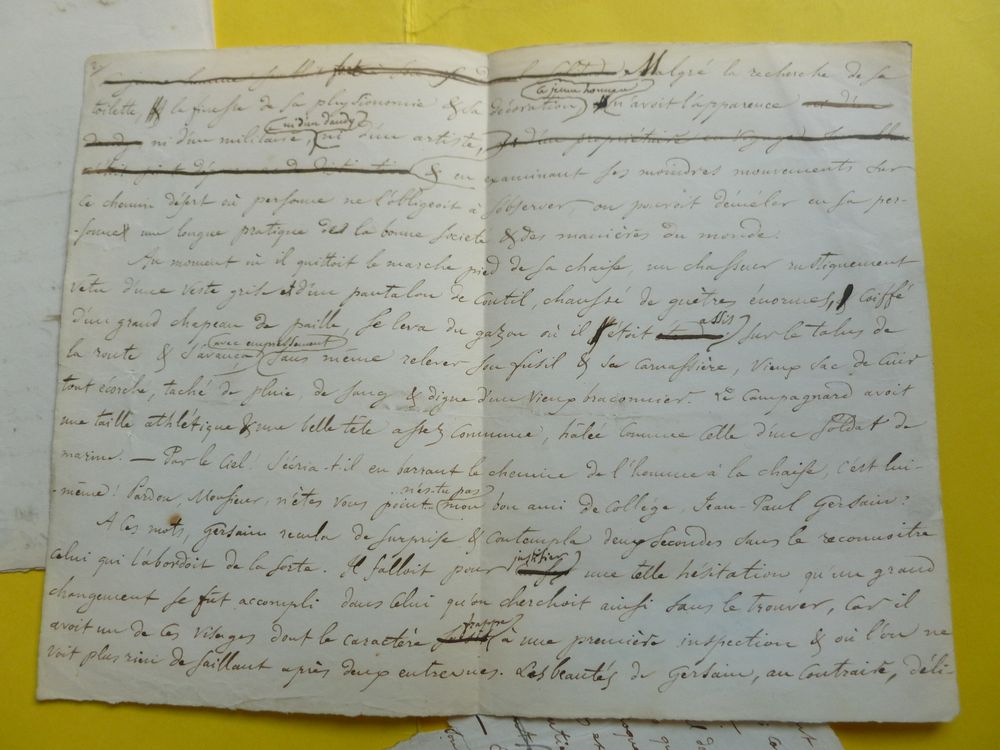 Malgré la recherche de sa
toilette, la finesse de sa physionomie & la décoration, le jeune homme n'avoit l'apparence
ni d'un militaire, ni d'un dandy, ni d'un artiste,
& en examinant ses moindres mouvements sur
ce chemin désert où personne ne l'obligeoit à s'observer, on pouvoit démêler en sa per-
-sonne une longue pratique de la bonne societé & des manières du monde.
Au moment où il quittoit le marche pied de sa chaise, un chasseur rustiquement
vêtu d'une veste grise et d'un pantalon de coutil, chaussé de guêtres énormes, coiffé
d'un grand chapeau de paille, se leva du gazon où il étoit assis sur le talus de
la route & s'avança avec empressement sans même relever son fusil & sa carnassière, vieux sac de cuir
tout écorché, taché de pluie, de sang & digne d'un vieux braconnier. Le campagnard avoit
une taille athlétique & une belle tête assez commune, hâlée comme celle d'un soldat de
marine. — Par le ciel! s'écria-t-il en barrant le chemin de l'homme à la chaise, c'est lui-
-même! Pardon, Monsieur, n'êtes vous point... n'es-tu pas mon bon ami de collége, Jean-Paul Gersain?
A ces mots, Gersain recula de surprise & contempla deux secondes sans le reconnoitre
celui qui l'abordoit de la sorte. Il falloit pour justifier une telle hésitation qu'un grand
changement se fut accompli dans celui qu'on cherchoit ainsi sans le trouver, car il
avoit un de ces visages dont le caractère frappe à une première inspection & où l'on ne
voit plus rien de saillant après deux entrevues. Les beautés de Gersain, au contraire, déli-